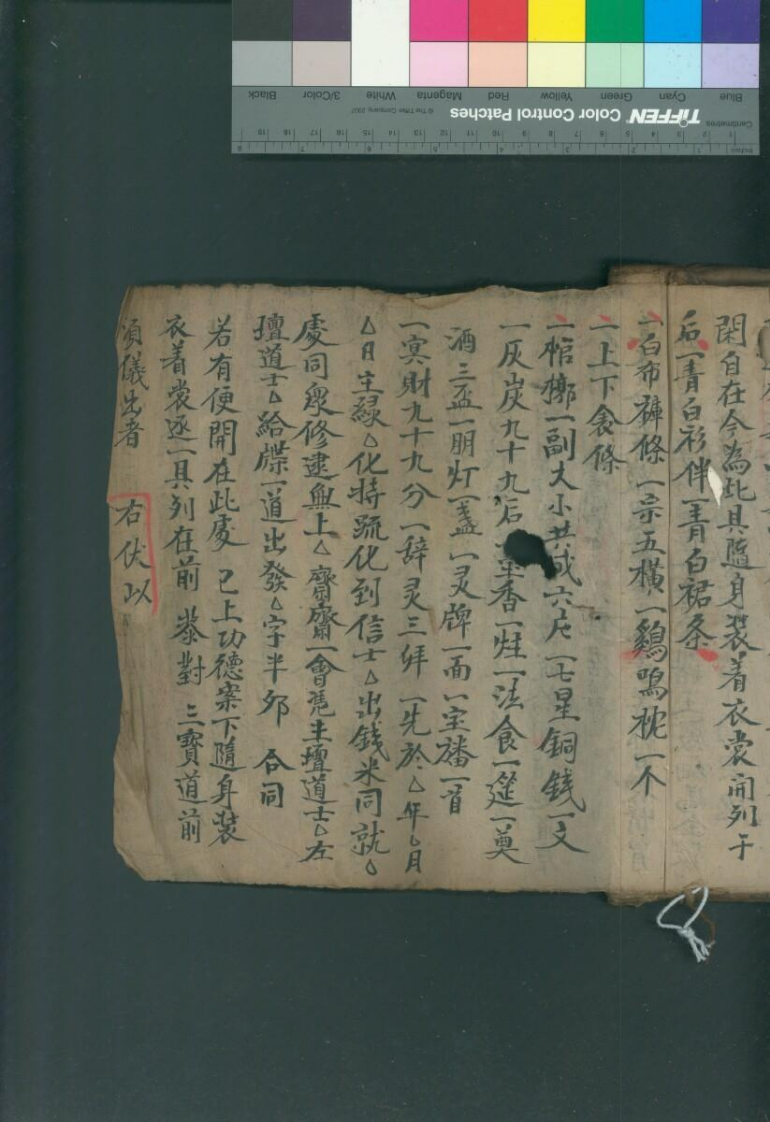 閑自在今為此具隨身装着衣裳開列于
后一青白衫伴一青白裙条
一白布褲條一宗五橫一鷄鳴枕一个
一上下衾條
一棺槨一副大小共成六尺一七星铜錢一文
一灰炭九十九后 香一炷一法食一筵一奠
酒三盃一朋灯一盞一灵牌一面一宝旛一首
一冥財九十九分一辞灵三拜一先於△年△月
△日主緣△化特疏化到信士△出錢米同就△
處同衆修建無上△齋齋一會凭主壇道士△左
壇道士△給牒一道出發△字半邜 合同
若有便開在此處 已上功德案下隨身装
衣着裳逐一具列在前 恭對 三寶道前
須儀出者 右伏以
Blue Cyan Green Yellow Red Magenta White 3/Color Black
TIFFEN Color Control Patches © The Tiffen Company, 2007
Centimetres
Inches